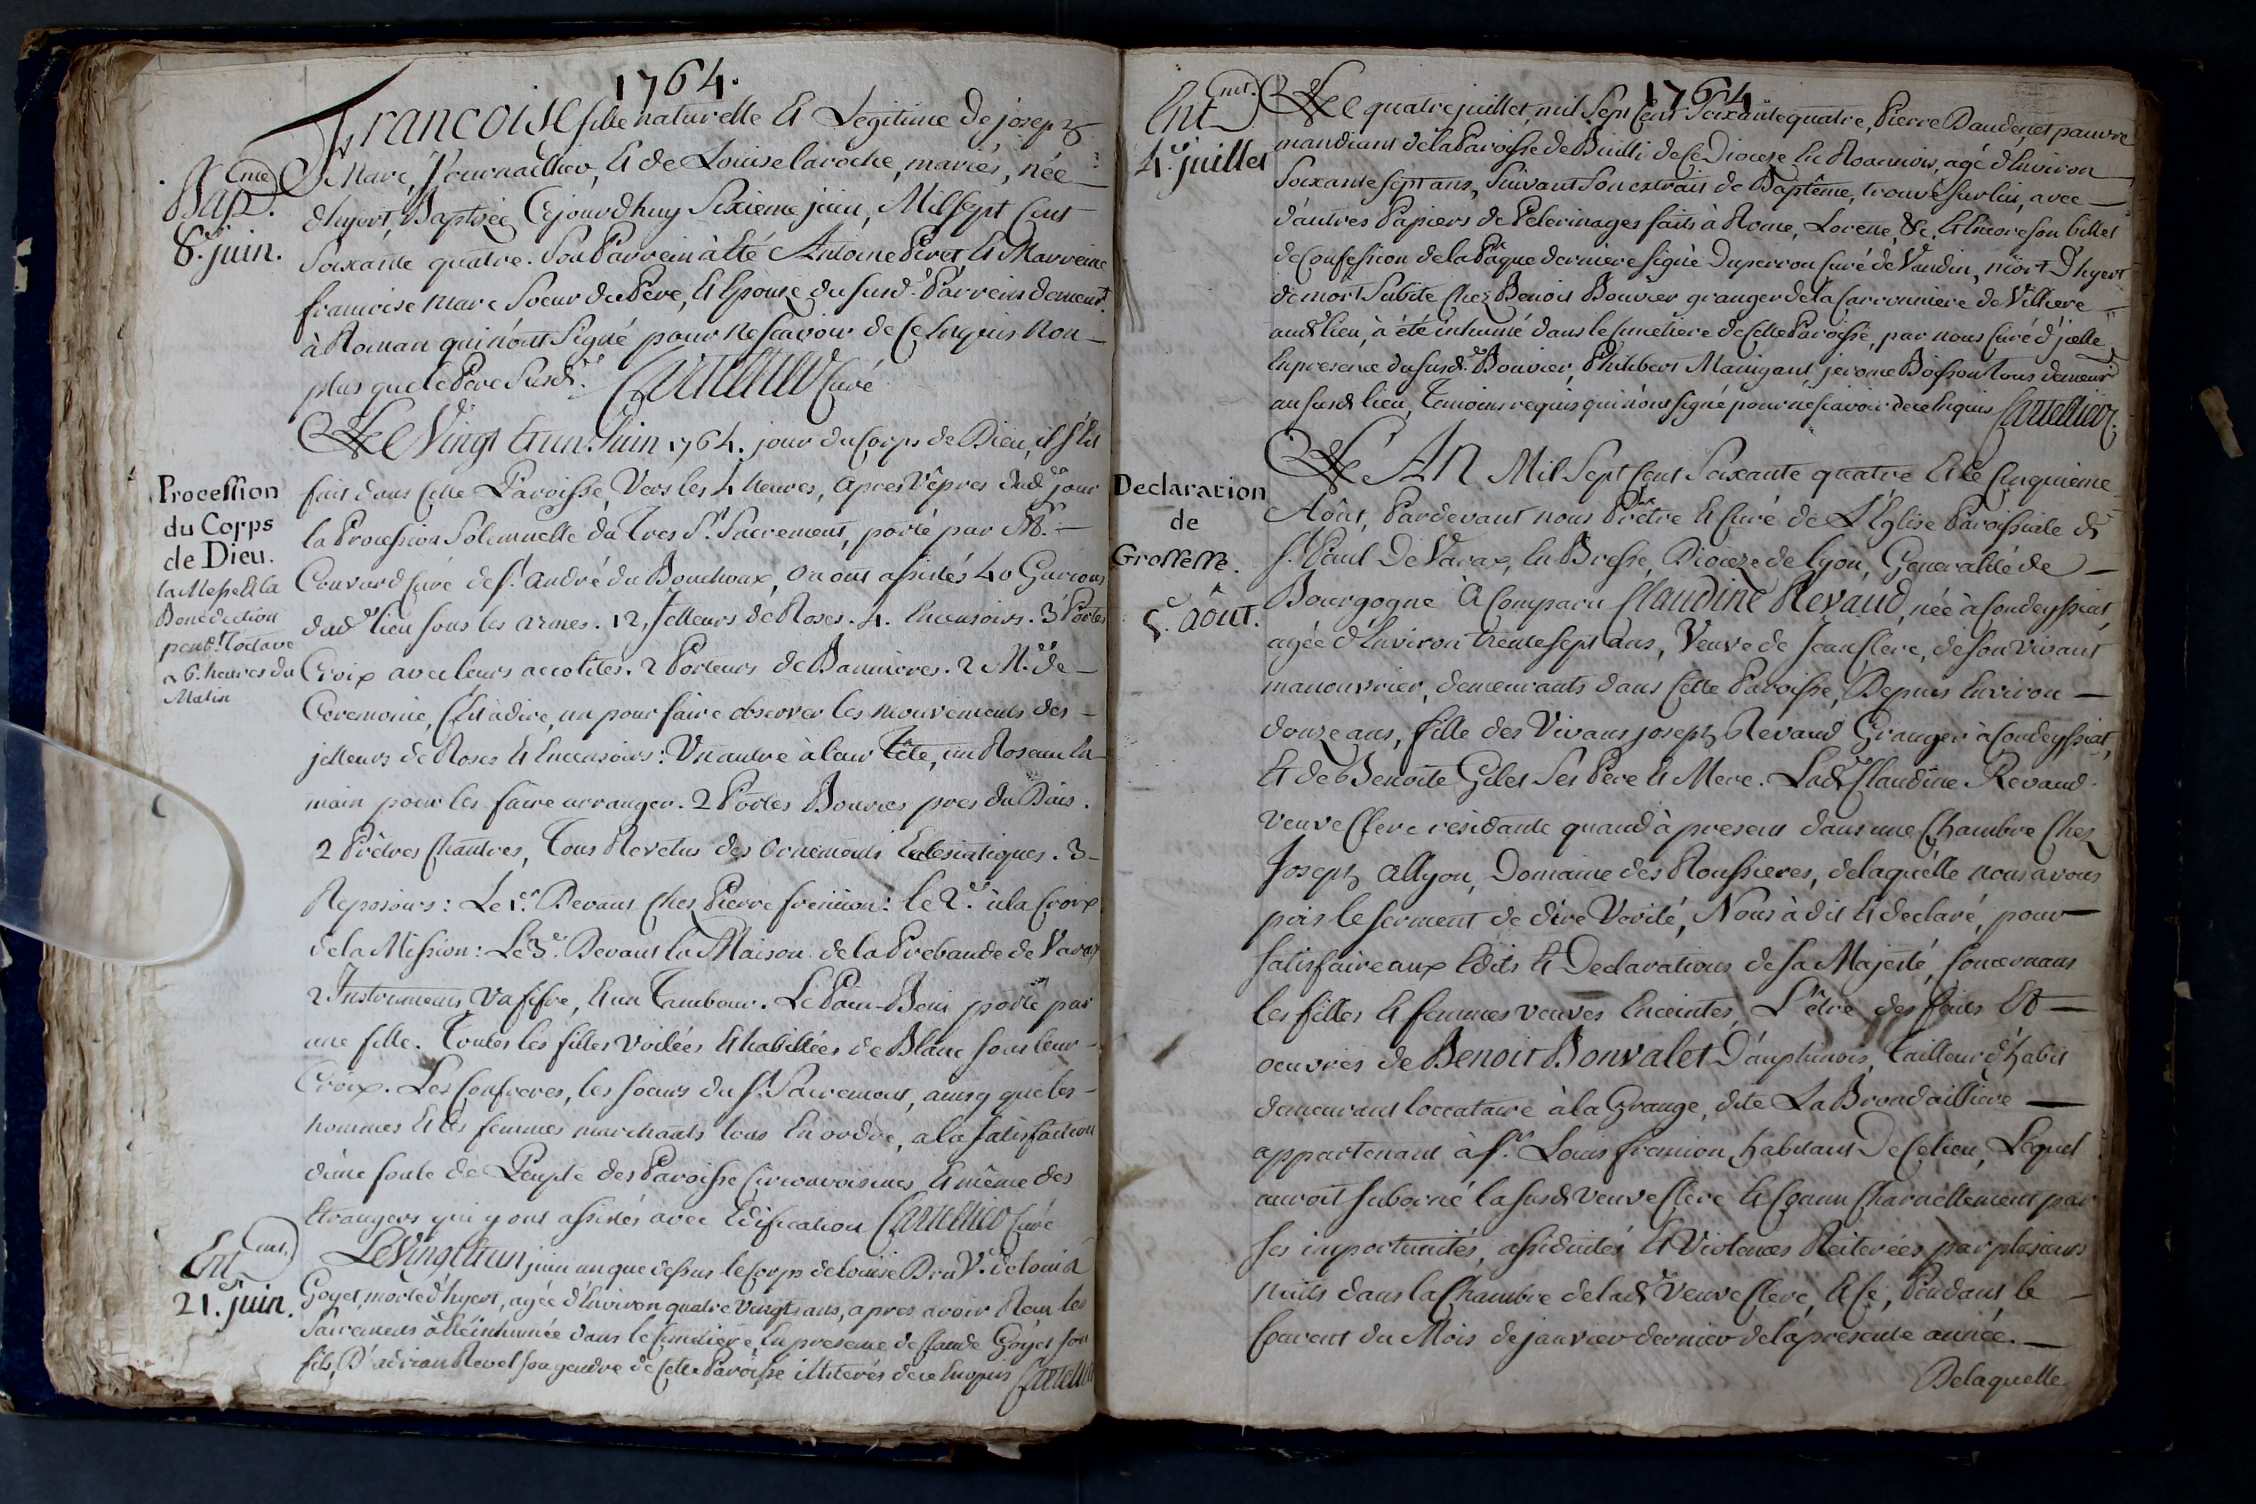 1764.
Bap. eme
6.e juin.
Francoise fille naturelle et Legitime de joseph
Marc, Journaillier, et de Louise laroche, mariés, née
d'hyert, Baptisée Cejourdhuy Sixieme juin, Mil Sept Cent
Soixante quatre. Son Parrein à été Antoine Péret et Marreine
francoise marc Soeur du Père, et Epouse du susd.t Parrein demeur.t
à Roman qui n'ont Signé pour ne scavoir de ce Enquis Non
plus que le Père Susd.t Cartellier Curé
Procession
du Corps
de Dieu.
la Messe et la
Benediction
pend.t l'octave
a 6. heures du
Matin
Le Vingt et un Juin 1764. jour du Corps de Dieu, il s'est
fait dans cette Paroisse, Vers les 4 heures, apres Vêpres dud. jour
la Procession Solemnelle du Tres S.t Sacrement, porté par M.r
Convard Curé de s.t andré du Bouchoux, où ont assistés 40 Garcons
dud. lieu sous les armes. 12, Jetteurs de Roses. 4. Encensoirs. 3 Portes
Croix avec leurs accolites. 2 Porteurs de Bannieres. 2 M.es de
Ceremonie, C'est à dire, un pour faire observer les mouvements des
jetteurs de Roses et Encensoirs: Un autre à leur Tête, un Roseau En
main pour les faire arranger. 2 Portes Bources pres du Dais.
2 Prêtres Chantres, Tous Revetus des Ornements Eclesiatiques. 3
Reposoirs: Le 1.er Devant Chez Pierre fremion: le 2.e à la Croix
de la Mission: Le 3.e Devant la Maison de la Prebande de Varax
2 Instruments Un fifre, et un Tambour. Le Pain-Beni porté par
une fille. Toutes les filles Voilées et habillées de Blanc sous leur
Croix. Les Confreres, les soeurs du s.t Sacrement, ainsy que les
hommes et les femmes marchants tous En ordre, a la satisfaction
d'une foule de Peuple des Paroisse Circonvoisines et même des
Etrangers qui y ont assistés avec Edification Cartellier Curé
Ent. ent.
21. juin.
Le Vingt et un juin an que dessus le Corps de louise Bru V.e de louis
Goyet, morte d'hyert, agée d'Environ quatre vingts ans, apres avoir Recu les
Sacrements à été inhumée dans le Cimetiere En presence de Claude Goyet son
fils, D'adrian Revel son gendre de Cette Paroisse illiterés de ce Enquis Cartellier
1764
Ent. ment.
4.e juillet
Le quatre juillet, mil Sept Cent Soixante quatre, Pierre Daudenet pauvre
mandiant de la Paroisse de Builli de ce Diocese En Roannois, agé d'Environ
Soixante sept ans, Suivant Son extrait de Baptême, trouvé sur lui, avec
d'autres Papiers de Pelerinages faits à Rome, Lorette, &c, et Encore son billet
de Confession de la Pâque derniere signé Duperron Curé de Vandin, mort D'hyert
de mort Subite Chez Benoit Bouvier granger de la Carronniere de Villiere
aud. lieu, à été inhumé dans le Cimetiere de Cette Paroisse, par nous Curé d'jcelle
En presence du susd. Bouvier, Philibert Maingant, jerome Boisson tous demeur.t
au susd. lieu, Temoins requis qui n'ont signé pour ne scavoir de ce Enquis Cartellier
Declaration
de
Grossesse.
5.e Aôut.
L'An Mil Sept Cent Soixante quatre et le Cinquieme
Aôut, Pardevant nous Prêtre et Curé de L'Eglise Paroissiale de
s.t Paul De Varax, En Bresse, Diocèze de Lyon, Generalité de
Bourgogne à Comparu Claudine Revaud, née à Condeyssiat,
agée d'Environ trente sept ans, Veuve de Jean Clerc, de son Vivant
manouvrier, demeurants dans Cette Paroisse, Depuis Environ
douze ans, fille des Vivans joseph Revaud Granger à Condeyssiat,
et de Benoite Gilet Ses Pere et Mere. Lad. Claudine Revaud
veuve Clerc residante quand à present dans une Chambre Chez
Joseph allyon, Domaine des Roussieres, de laquelle nous avons
pris le serment de dire Verité, Nous à dit et declaré, pour
satisfaire aux Edits et Declarations de sa Majesté, Concernans
les filles et femmes veuves Enceintes, L'être des faits et
oeuvres de Benoit Bonvalet D'auphinois, tailleur d'habit
demeurant loccataire à la Grange, dite La Brondailliere
appartenant à s.r Louis fremion habitant De Ce lieu, Lequel
auroit suborné la susd. veuve Clerc et Connu Charnellement par
ses importunités, assiduités et Violences Reiterées par plusieurs
nuits dans la Chambre de lad. Veuve Clerc, et Ce, Pendant le
Courent du Mois de janvier dernier de la presente année.
De laquelle